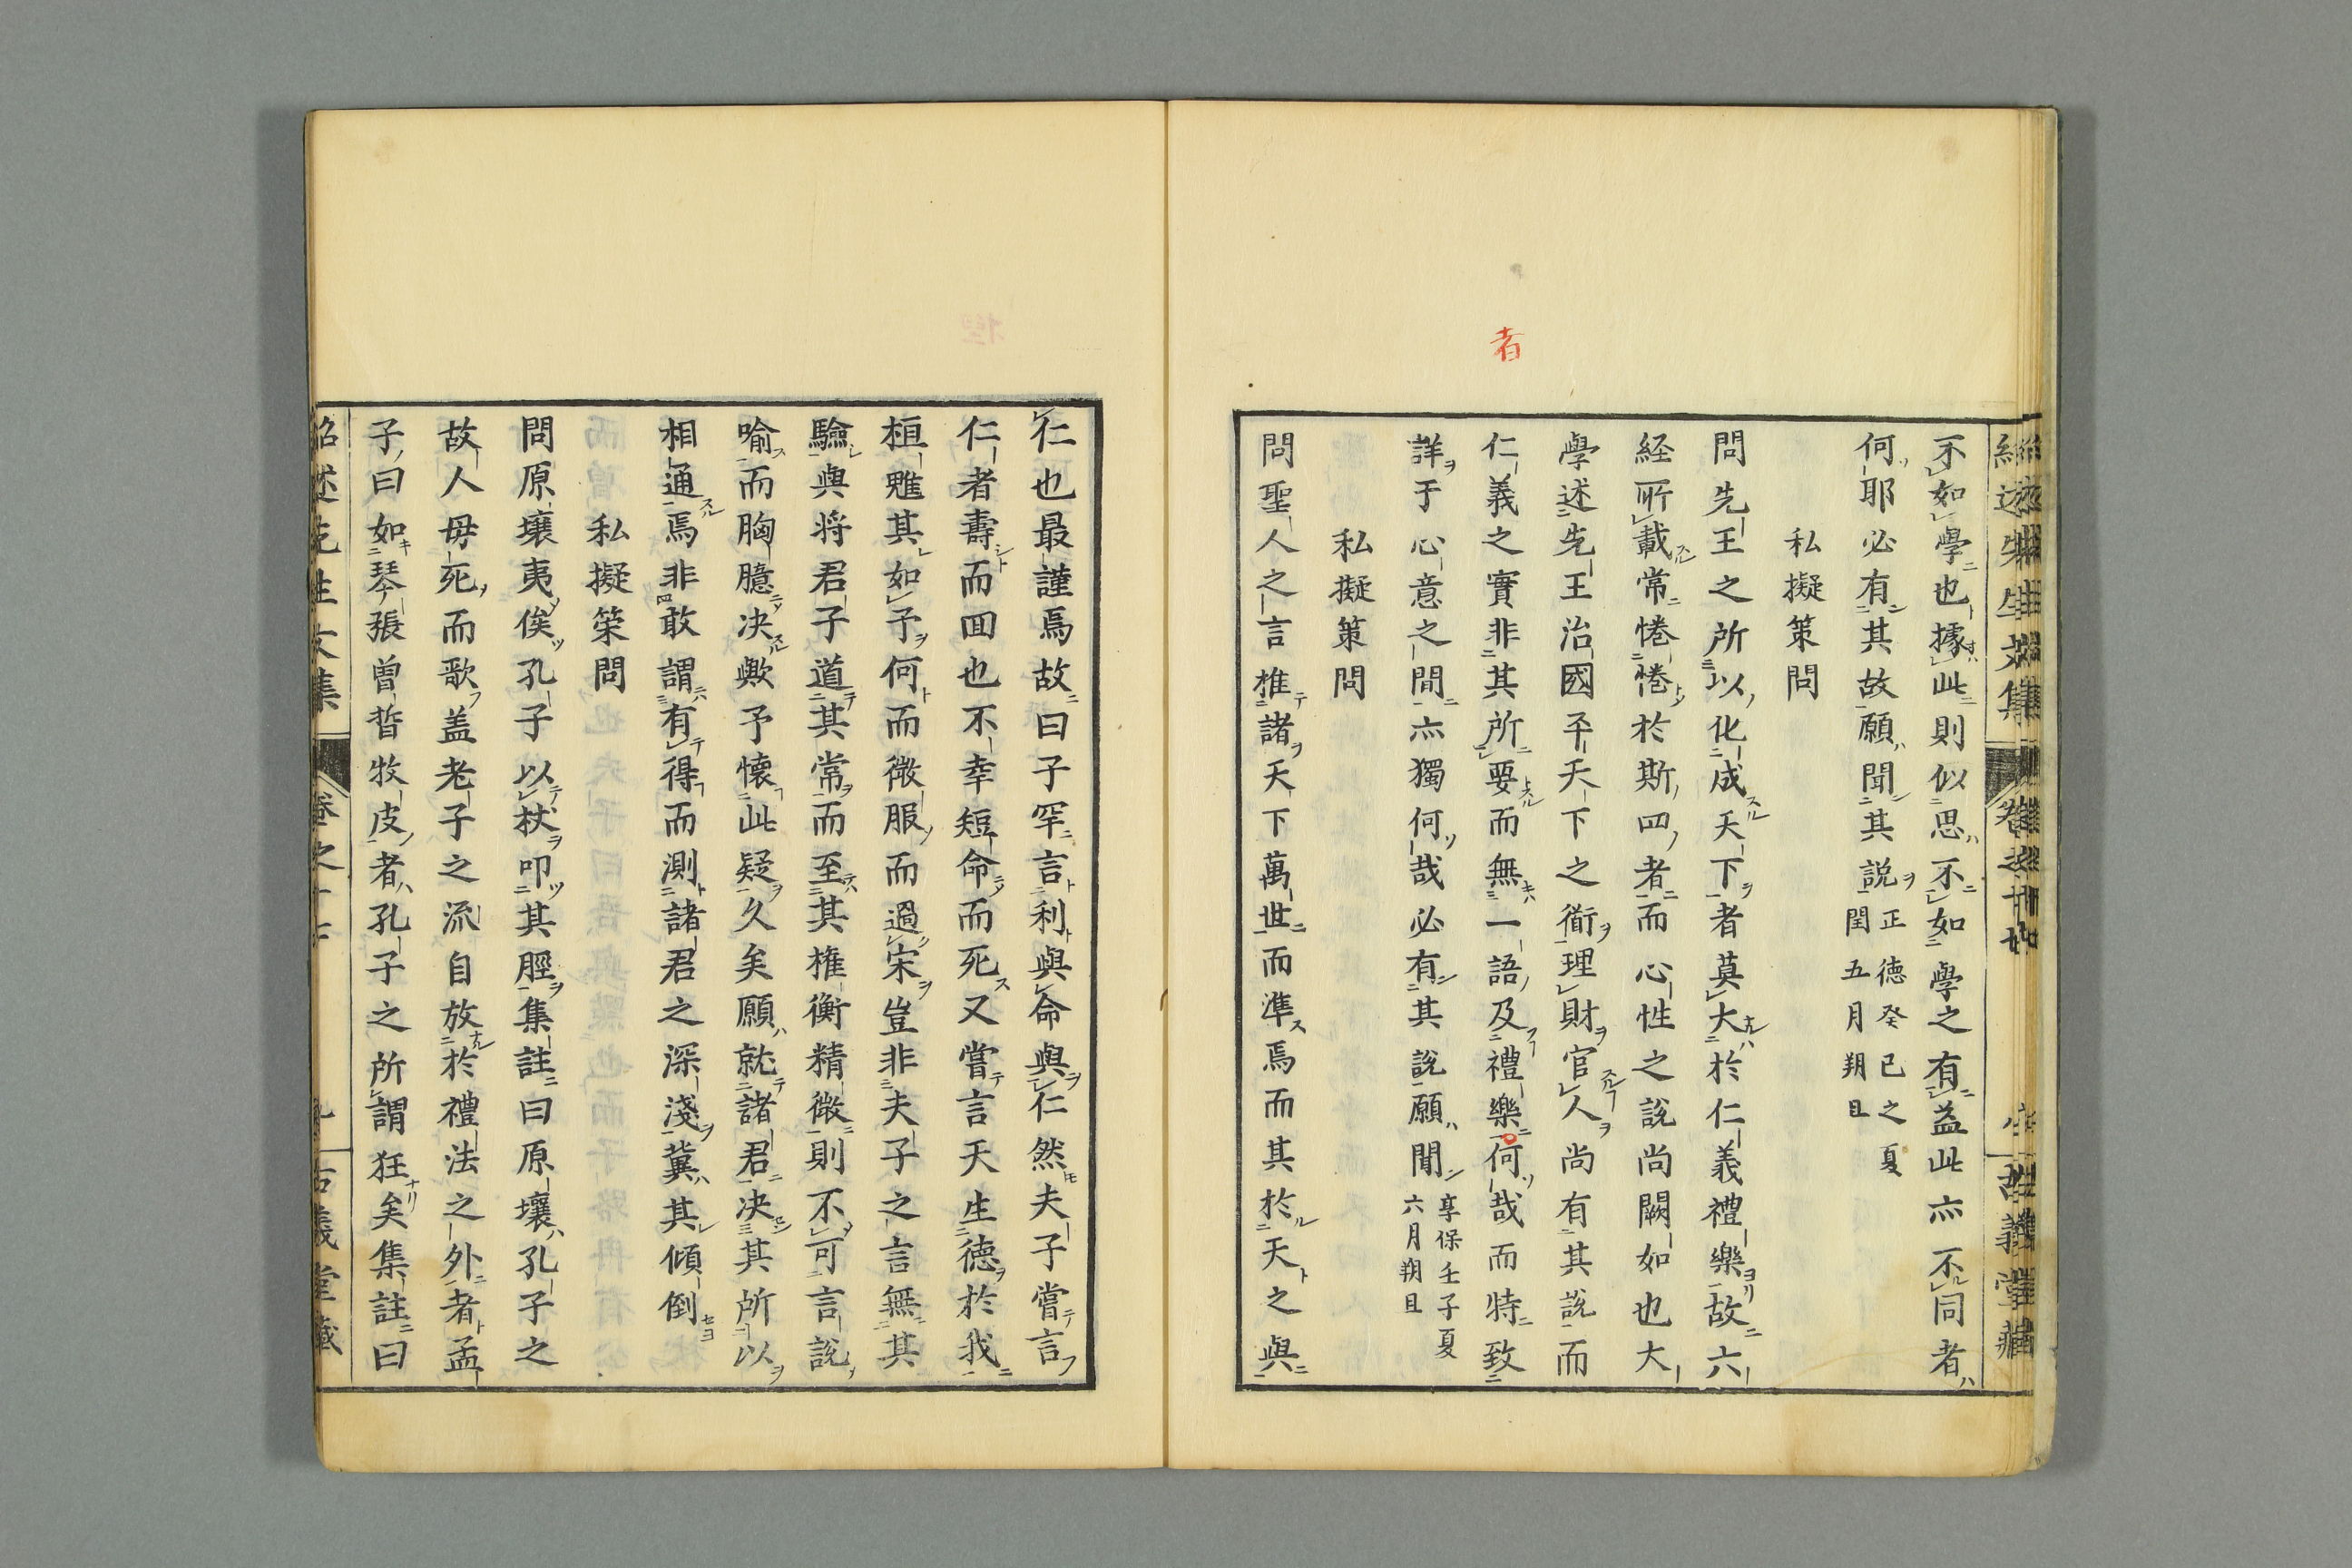 不如學也據此則似思不如學之有益此亦不同者
何耶必有其故願聞其説正德癸巳之夏
閏五月朔旦
私擬策問
問先王之所以化成天下者莫大於仁義禮樂故六
経所載常惓惓於斯四者而心性之說尚闕如也大
學述先王治國平天下之術理財官人尚有其說而
仁義之實非其所要而無一語及禮樂何哉而特致
者
詳于心意之間亦獨何哉必有其説願聞享保壬子夏
六月朔旦
私擬策問
問聖人之言推諸天下萬世而準焉而其於天之與
仁也最謹焉故曰子罕言利與命與仁然夫子嘗言
仁者壽而回也不幸短命而死又嘗言天生德於我
桓魋其如予何而微服而過宋豈非夫子之言無其
驗與将君子道其常而至其権衡精微則不可言說
喻而胸臆决歟予懷此疑久矣願就諸君决其所以
相通焉非敢謂有得而測諸君之深淺冀其傾倒
私擬策問
問原壤夷俟孔子以杖叩其脛集註曰原壤孔子之
故人母死而歌盖老子之流自放於禮法之外者孟
子曰如琴張曽皙牧皮者孔子之所謂狂矣集註曰
紹述先生文集 卷之十七 古義堂藏